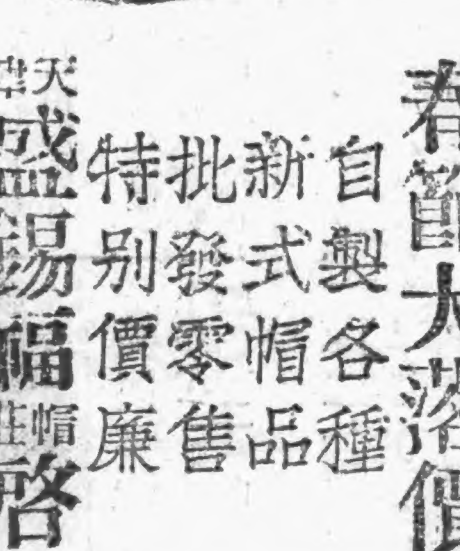 春節大落價
自製各種
新式帽品
批發零售
特別價廉
天津盛錫福帽莊啓